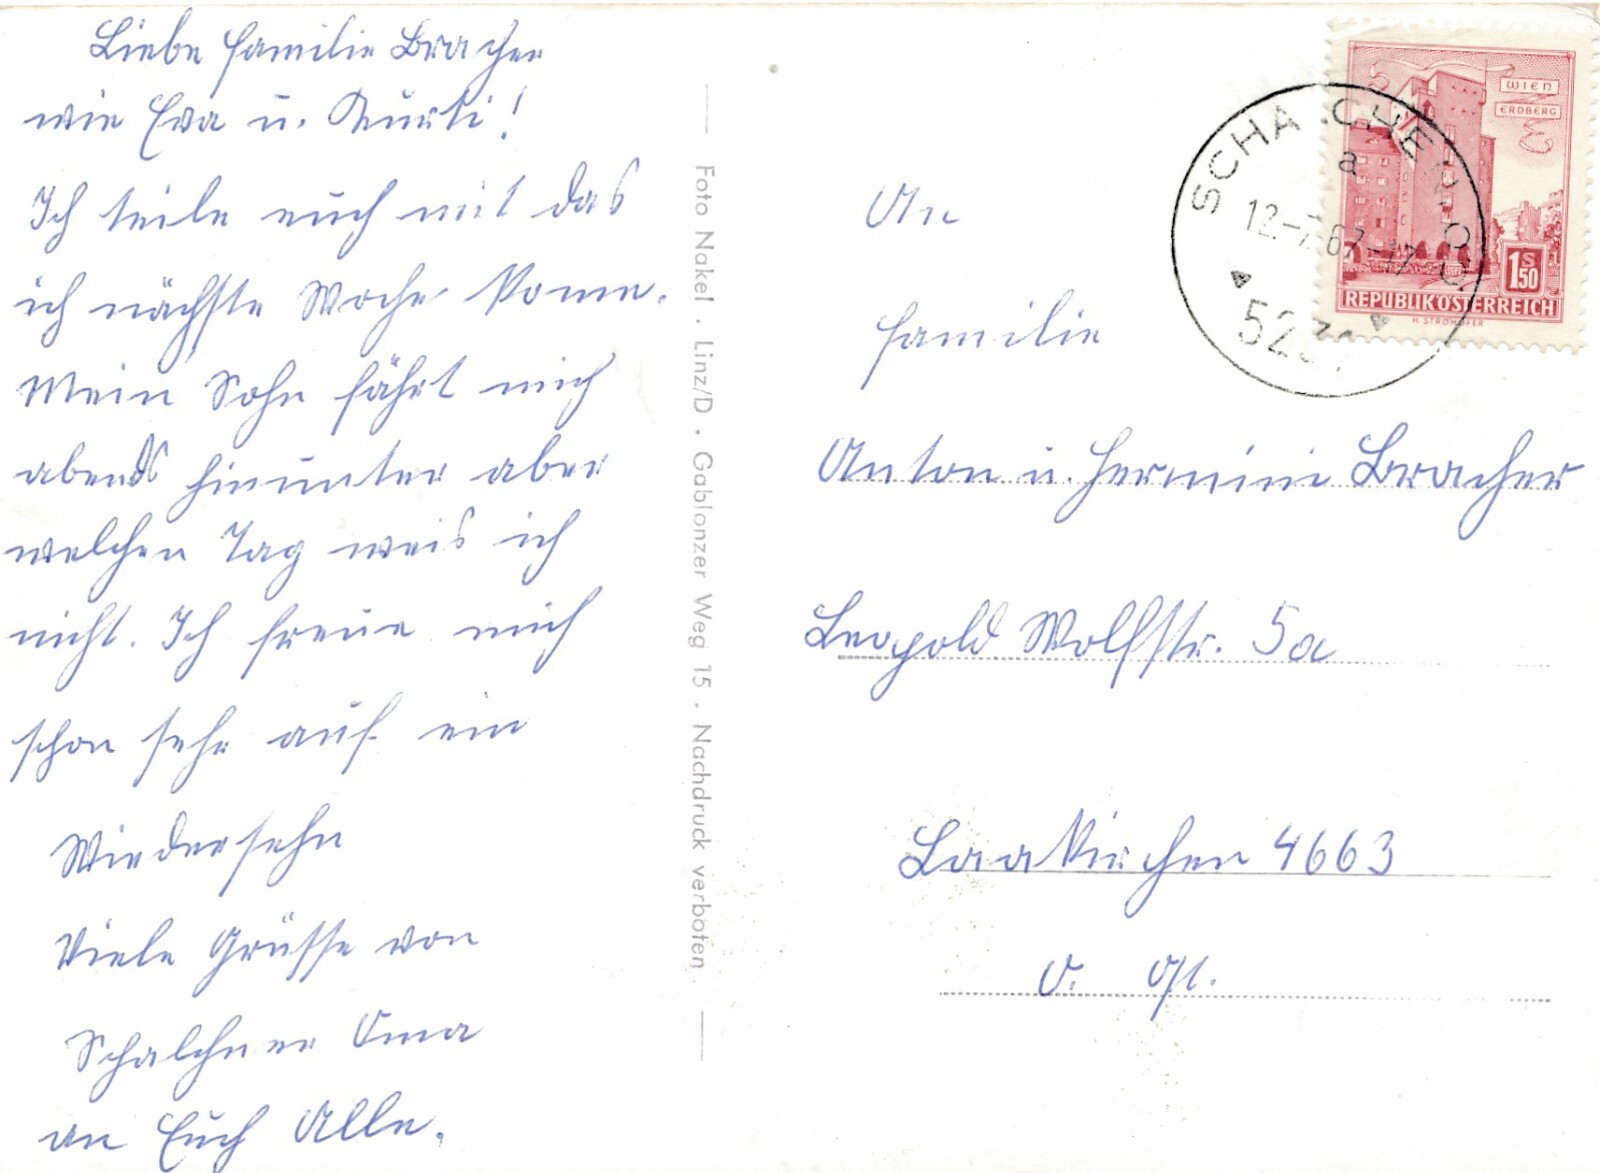 Liebe Familie Bracher
wie Eva u. Kurti!
Ich teile euch mit das
ich nächste Woche kome.
Mein Sohn fährt mich
abends hinunter aber
welchen Tag weis ich
nicht. Ich freue mich
schon sehr auf ein
Wiedersehn
Viele Grüsse von
Schalchner Oma
an Euch Alle.
Foto Nakel . Linz/D . Gablonzer Weg 15 . Nachdruck verboten
An
Familie
Anton u. Hermine Bracher
Leopold Wolfstr. 5a
Laakirchen 4663
O. Öst.
SCHALCHEN, OÖ
a
12.-7.67-17
52
WIEN
ERDBERG
1 S 50
REPUBLIK ÖSTERREICH
H. STROHOFER